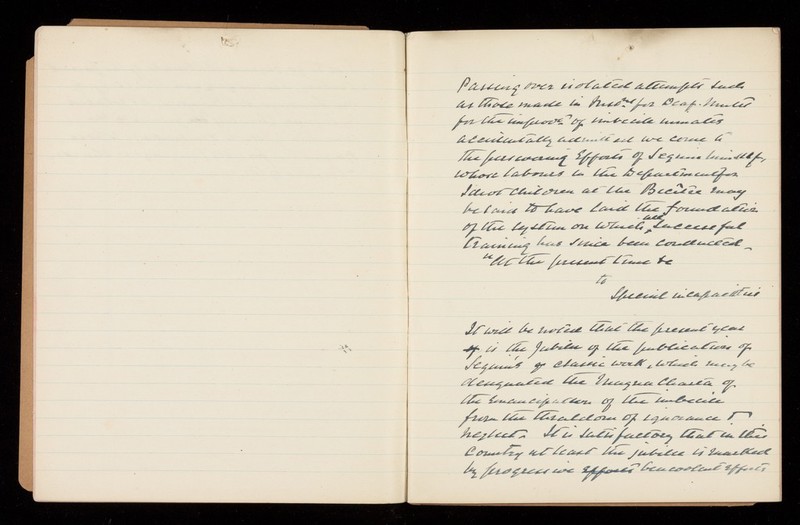 Passing over isolated attempts such
as those made in Instns for Deaf-Mutes
for the improvt of imbecile inmates
accidentally admitted we come to
the persevering Efforts of Seguin himself,
whose labours in the Department for
Idiot Children at the Bicêtre may
be said to have laid the foundation
of the system on which all successful
training has since been conducted -
"At the present time &c
to
Special incapacities
It will be noted that the present year
is the Jubilee of the publication of
Seguin's classic work, which may be
designated the Magna Charta of
the Emancipation of the imbecile
from the thraldom of ignorance &
neglect. It is satisfactory that in this
Country at least the jubilee is marked
by progressive efforts benevolent efforts